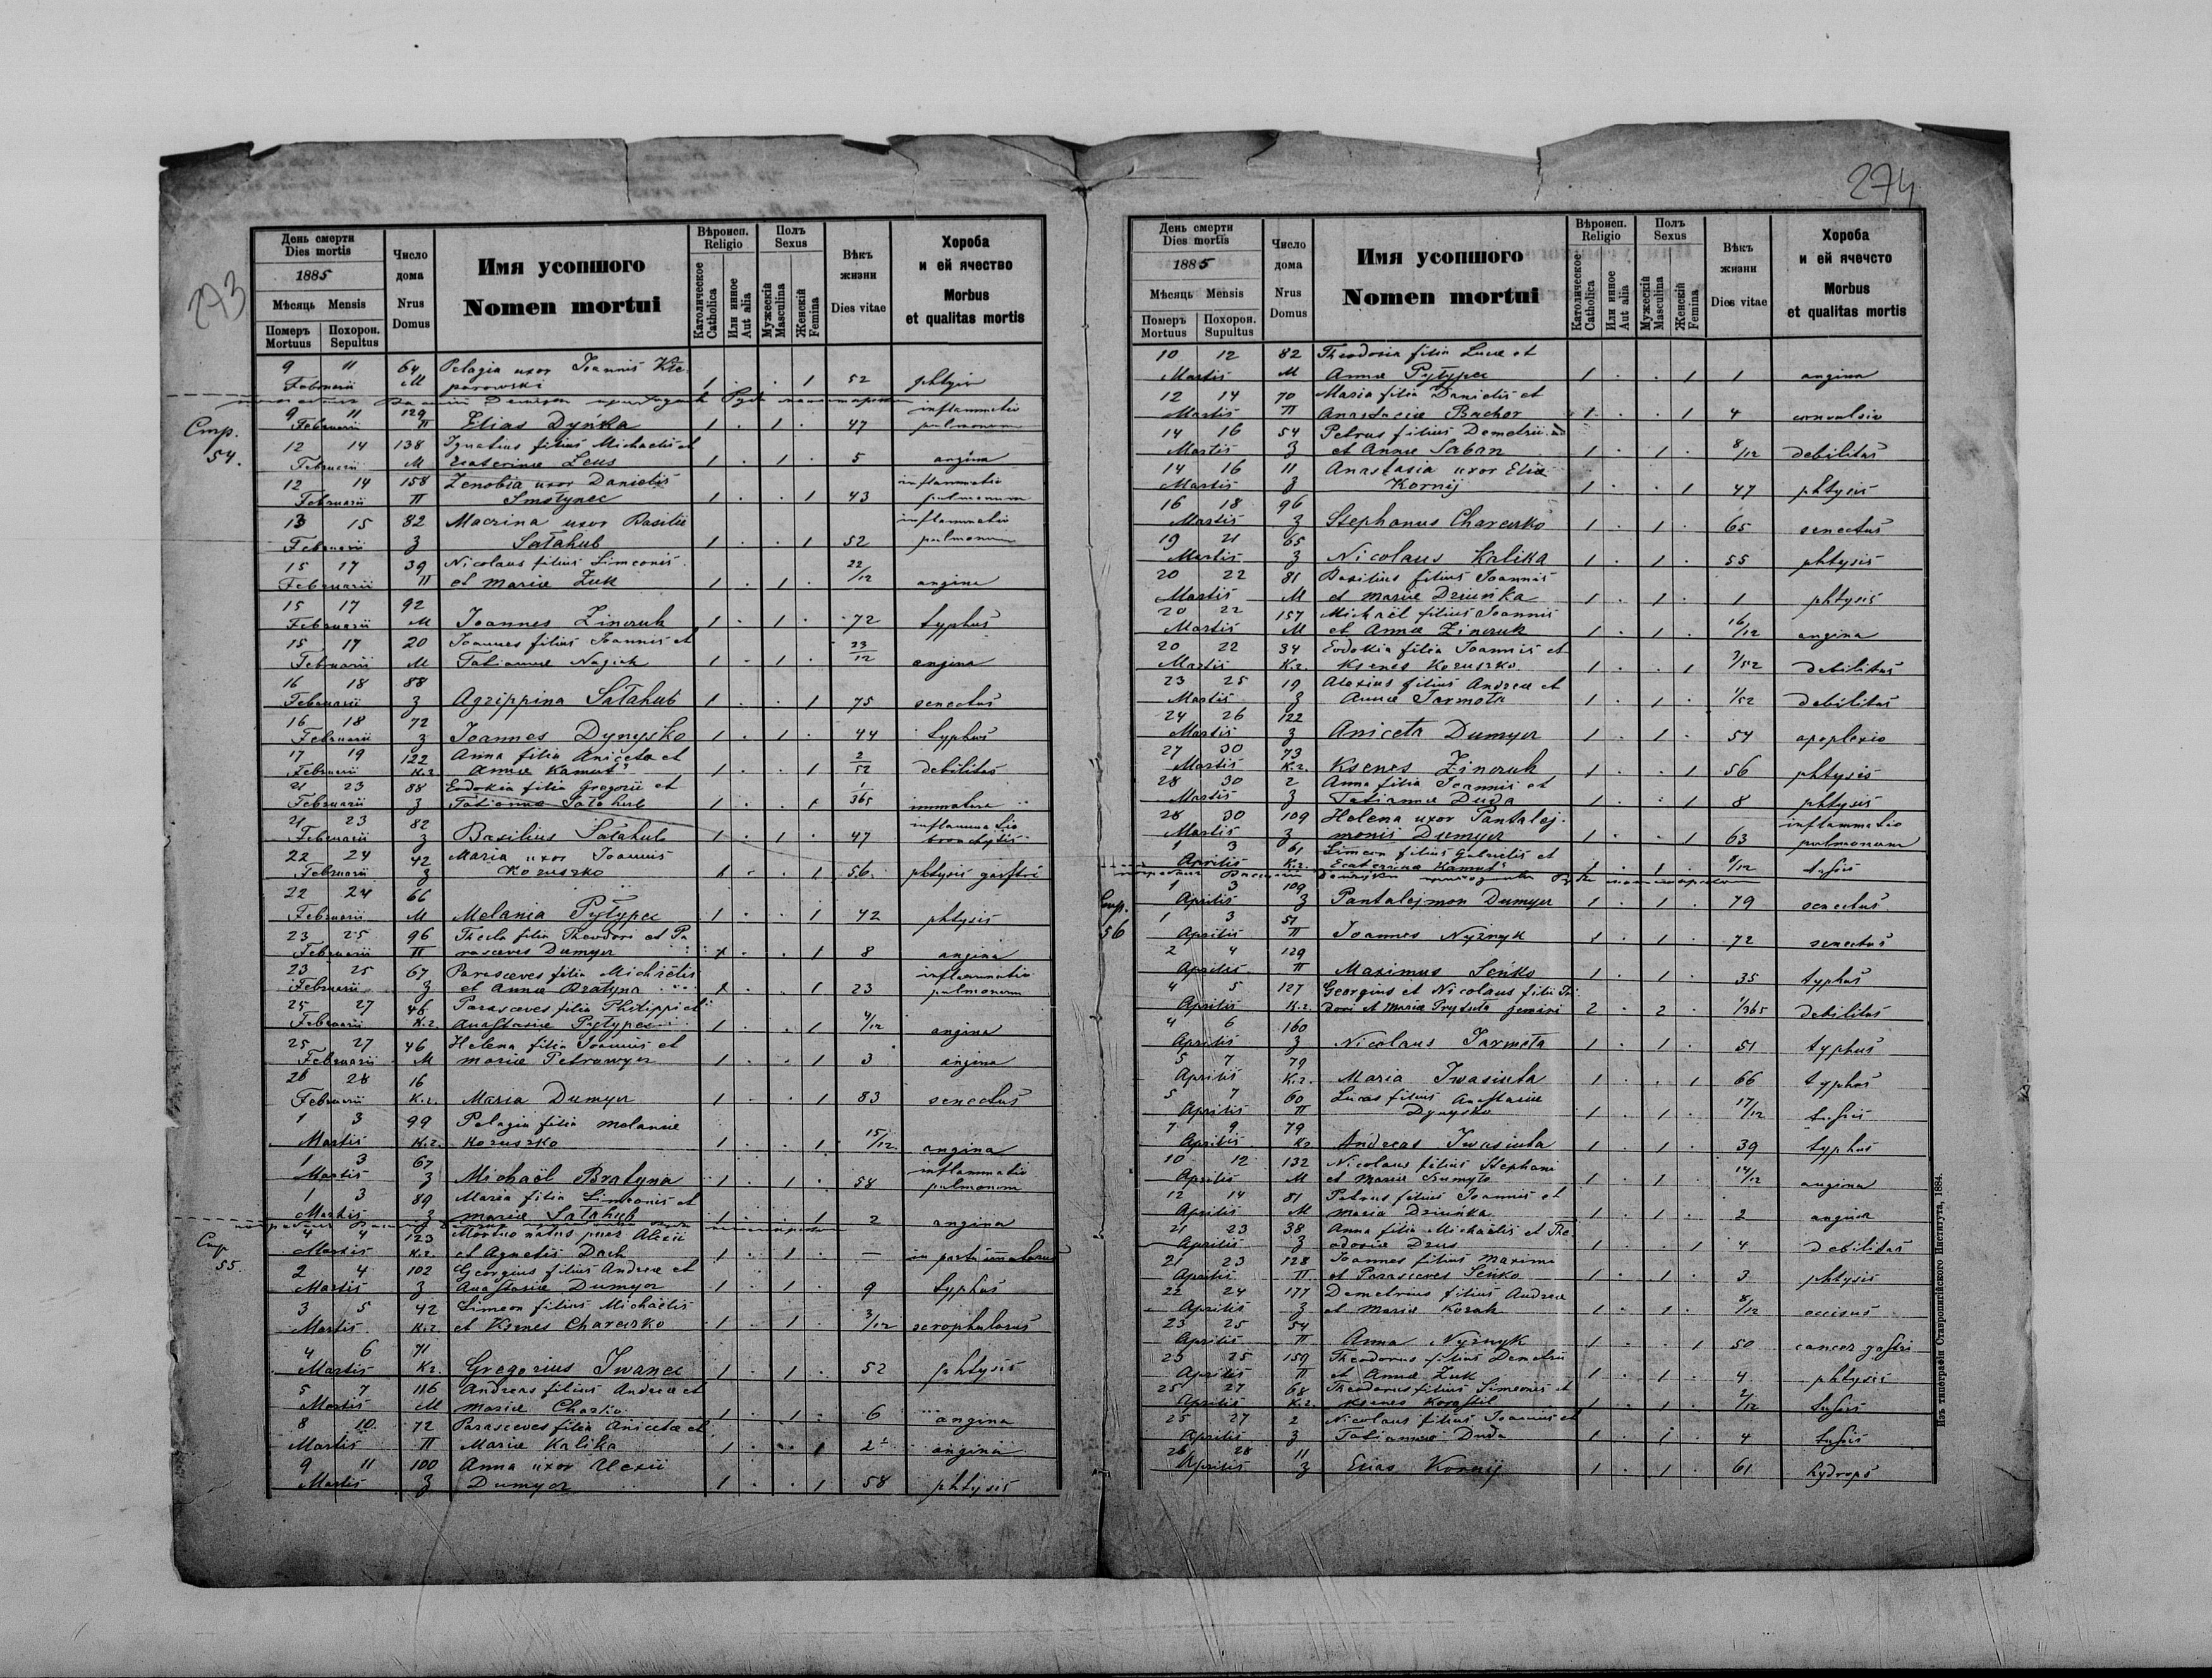 273
День смерти
Dies mortis
1885
Мѣсяць Mensis
Померъ Похорон.
Mortuus Sepultus
Число
дома
Nrus
Domus
Имя усопшого
Nomen mortui
Вѣроисп.
Religio
Католическое
Catholica
Или инное
Aut alia
Полъ
Sexus
Мужескій
Masculina
Женскій
Femina
Вѣкъ
жизни
Dies vitae
Хороба
и ей ячество
Morbus
et qualitas mortis
9 11 64 Pelagia uxor Joannis
Februarii M 1 . . 1 52
Стр.
54.
9 11 129 inflammatio
Februarii П Elias Dyńka 1 . 1 . 47 pulmonum
12 14 138 Ignatius filius Michaelis et
Februarii M Ecaterinae Leus 1 . 1 . 5 angina
12 14 158 Zenobia uxor Danielis inflammatio
Februarii П Smolynec 1 . . 1 43 pulmonum
13 15 82 Macrina uxor Basilii inflammatio
Februarii З Sałahub 1 . . 1 52 pulmonum
15 17 39 Nicolaus filius Simeonis
Februarii П et Mariae Zuk 1 . 1 . 22/12 angina
15 17 92
Februarii M Joannes Zinczuk 1 . 1 . 72 typhus
15 17 20 Joannes filius Joannis et
Februarii M Tatianae 1 . 1 . 23/12 angina
16 18 88
Februarii З Agrippina Sałahub 1 . . 1 75 senectus
16 18 72
Februarii З Joannes Dynyśko 1 . 1 . 44 typhus
17 19 122 Anna filia Anicetae et
Februarii К.г. Annae Kamut 1 . . 1 2/52 debilitas
21 23 88 Eudokia filia Gregorii et
Februarii З Tatianae Sałahub 1 . . 1 1/365 immatura
21 23 82 inflammatio
Februarii З Basilius Sałahub 1 . 1 . 47 bronchytis
22 24 42 Maria uxor Joannis
Februarii З Kozuszko 1 . . 1 56 phtysis gastri
22 24 66
Februarii M Melania Pyłypec 1 . . 1 42 phtysis
23 25 96 Thecla filia Theodori et Pa
Februarii П rasceves Dumyez 1 . . 1 8 angina
23 25 67 Parasceves filia Michaelis inflammatio
Februarii З et Annae Bratyna 1 . . 1 23 pulmonum
25 27 46 Parasceves filia Philippi et
Februarii К.г. Anastasiae Pyłypec 1 . . 1 4/12 angina
25 27 46 Helena filia Joannis et
Februarii M Mariae 1 . . 1 3 angina
26 28 16
Februarii К.г. Maria Dumyez 1 . . 1 83 senectus
1 3 99 Pelagia filia Melaniae
Martis К.г. Kozuszko 1 . . 1 15/12 angina
1 3 67 inflammatio
Martis З Michaël Bratyna 1 . 1 . 58 pulmonum
1 3 89 Maria filia Simeonis et
Martis З Mariae Sałahub 1 . . 1 2 angina
Стр.
55.
4 4 123 Mortuo natus puer Alexii
Martis К.г. et Agnetis 1 . 1 . —
2 4 102 Georgius filius Andreae et
Martis З Anastasiae Dumyez 1 . 1 . 9 typhus
3 5 42 Simeon filius Michaelis
Martis К.г. et Ksenes Charczko 1 . 1 . 3/12 scrophulosus
4 6 71
Martis К.г. Gregorius Iwanec 1 . 1 . 52 phtysis
5 7 116 Andreas filius Andreae et
Martis M Mariae 1 . 1 . 6 angina
8 10 72 Parasceves filia Anicetae et
Martis П Mariae Kalika 1 . . 1 2 angina
9 11 100 Anna uxor Alexii
Martis З Dumyez 1 . . 1 58 phtysis
274
День смерти
Dies mortis
1885
Мѣсяць Mensis
Померъ Похорон.
Mortuus Supultus
Число
дома
Nrus
Domus
Имя усопшого
Nomen mortui
Вѣроисп.
Religio
Католическое
Catholica
Или инное
Aut alia
Полъ
Sexus
Мужескій
Masculina
Женскій
Femina
Вѣкъ
жизни
Dies vitae
Хороба
и ей ячечсто
Morbus
et qualitas mortis
10 12 82 Theodosia filia Lucae et
Martis M Annae Pyłypec 1 . . 1 1 angina
12 14 70 Maria filia Danielis et
Martis П Anastasiae Bachor 1 . . 1 4 convulsio
14 16 54 Petrus filius Demetrii
Martis З et Annae Saban 1 . 1 . 8/12 debilitas
14 16 11 Anastasia uxor Eliae
Martis З Kornij 1 . . 1 47 phtysis
16 18 96
Martis З Stephanus Charczko 1 . 1 . 65 senectus
19 21 65
Martis З Nicolaus Kalika 1 . 1 . 55 phtysis
20 22 81 Basilius filius Joannis
Martis M et Mariae Dziuńka 1 . 1 . 1 phtysis
20 22 157 Michaël filius Joannis
Martis M et Annae Zinczuk 1 . 1 . 16/12 angina
20 22 34 Eudokia filia Joannis et
Martis К.г. Ksenes Kozuszko 1 . . 1 3/52 debilitas
23 25 19 Alexius filius Andreae et
Martis З Annae Jarmoła 1 . 1 . 1/52 debilitas
24 26 122
Martis З Aniceta Dumyez 1 . 1 . 54 apoplexio
27 30 73
Martis К.г. Ksenes Zinczuk 1 . . 1 56 phtysis
28 30 2 Anna filia Joannis et
Martis З Tatianae Duda 1 . . 1 8 phtysis
28 30 109 Helena uxor Pantalej- inflammatio
Martis З monis Dumyez 1 . . 1 63 pulmonum
1 3 61 Simeon filius Gabrielis et
Aprilis К.г. Ecaterinae Kamut 1 . 1 . 8/12 tussis
Стр.
56
1 3 109
Aprilis З Pantalejmon Dumyez 1 . 1 . 79 senectus
1 3 51
Aprilis П Joannes Nyżnyk 1 . 1 . 72 senectus
2 4 129
Aprilis П Maximus Seńko 1 . 1 . 35 typhus
4 5 127 Georgius et Nicolaus filii
Aprilis К.г. dori et Mariae Prytuła gemini 2 . 2 . 1/365 debilitas
4 6 160
Aprilis З Nicolaus Jarmoła 1 . 1 . 51 typhus
5 7 79
Aprilis К.г. Maria Iwasiuta 1 . . 1 66 typhus
5 7 60 Lucas filius Anastasiae
Aprilis П Dynysko 1 . 1 . 17/12 tussis
7 9 79
Aprilis К.г. Andreas Iwasiuta 1 . 1 . 39 typhus
10 12 132 Nicolaus filius Stephani
Aprilis M et Mariae 1 . 1 . 14/12 angina
12 14 81 Petrus filius Joannis et
Aprilis M Mariae Dziuńka 1 . 1 . 2 angina
21 23 38 Anna filia Michaëlis et The
Aprilis З odosiae Dzus 1 . . 1 4 debilitas
21 23 128 Joannes filius Maximi
Aprilis П et Parasceves Seńko 1 . 1 . 3 phtysis
22 24 177 Demetrius filius Andreae
Aprilis З et Mariae Kozak 1 . 1 . 8/12 occisus
23 25 54
Aprilis П Anna Nyżnyk 1 . . 1 50 cancer gastri
23 25 159 Theodorus filius Demetrii
Aprilis П et Annae Zuk 1 . 1 . 4 phtysis
25 27 68 Theodorus filius Simeonis et
Aprilis К.г. Ksenes 1 . 1 . 2/12 tussis
25 27 2 Nicolaus filius Joannis et
Aprilis З Tatianae Duda 1 . 1 . 4 tussis
26 28 11
Aprilis З Elias Kornij 1 . 1 . 61 hydrops
Изъ типографіи Ставропигійского Института, 1884.